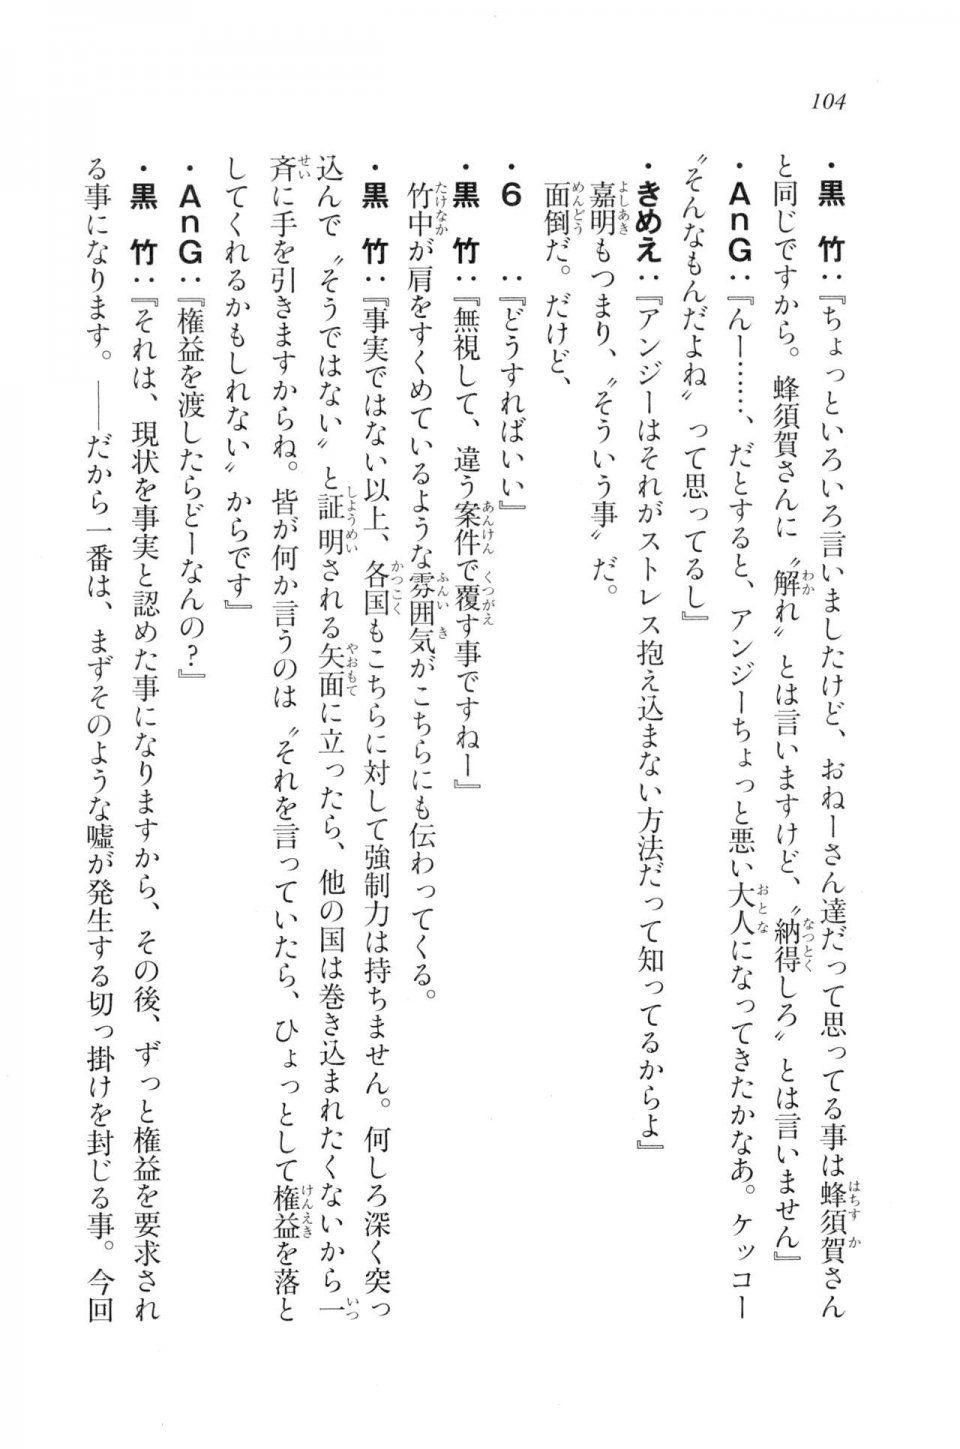 104
・黒　竹：『ちょっといろいろ言いましたけど、おねーさん達だって思ってる事は蜂須賀さん
と同じですから。蜂須賀さんに〝解れ〟とは言いますけど、〝納得しろ〟とは言いません』
・AnG：『んー……、だとすると、アンジーちょっと悪い大人になってきたかなあ。ケッコー
〝そんなもんだよね〟って思ってるし』
・きめえ：『アンジーはそれがストレス抱え込まない方法だって知ってるからよ』
嘉明もつまり、〝そういう事〟だ。
面倒だ。だけど、
・6　　：『どうすればいい』
・黒　竹：『無視して、違う案件で覆す事ですねー』
竹中が肩をすくめているような雰囲気がこちらにも伝わってくる。
・黒　竹：『事実ではない以上、各国もこちらに対して強制力は持ちません。何しろ深く突っ
込んで〝そうではない〟と証明される矢面に立ったら、他の国は巻き込まれたくないから一
斉に手を引きますからね。皆が何か言うのは〝それを言っていたら、ひょっとして権益を落と
してくれるかもしれない〟からです』
・AnG：『権益を渡したらどーなんの？』
・黒　竹：『それは、現状を事実と認めた事になりますから、その後、ずっと権益を要求され
る事になります。――だから一番は、まずそのような嘘が発生する切っ掛けを封じる事。今回